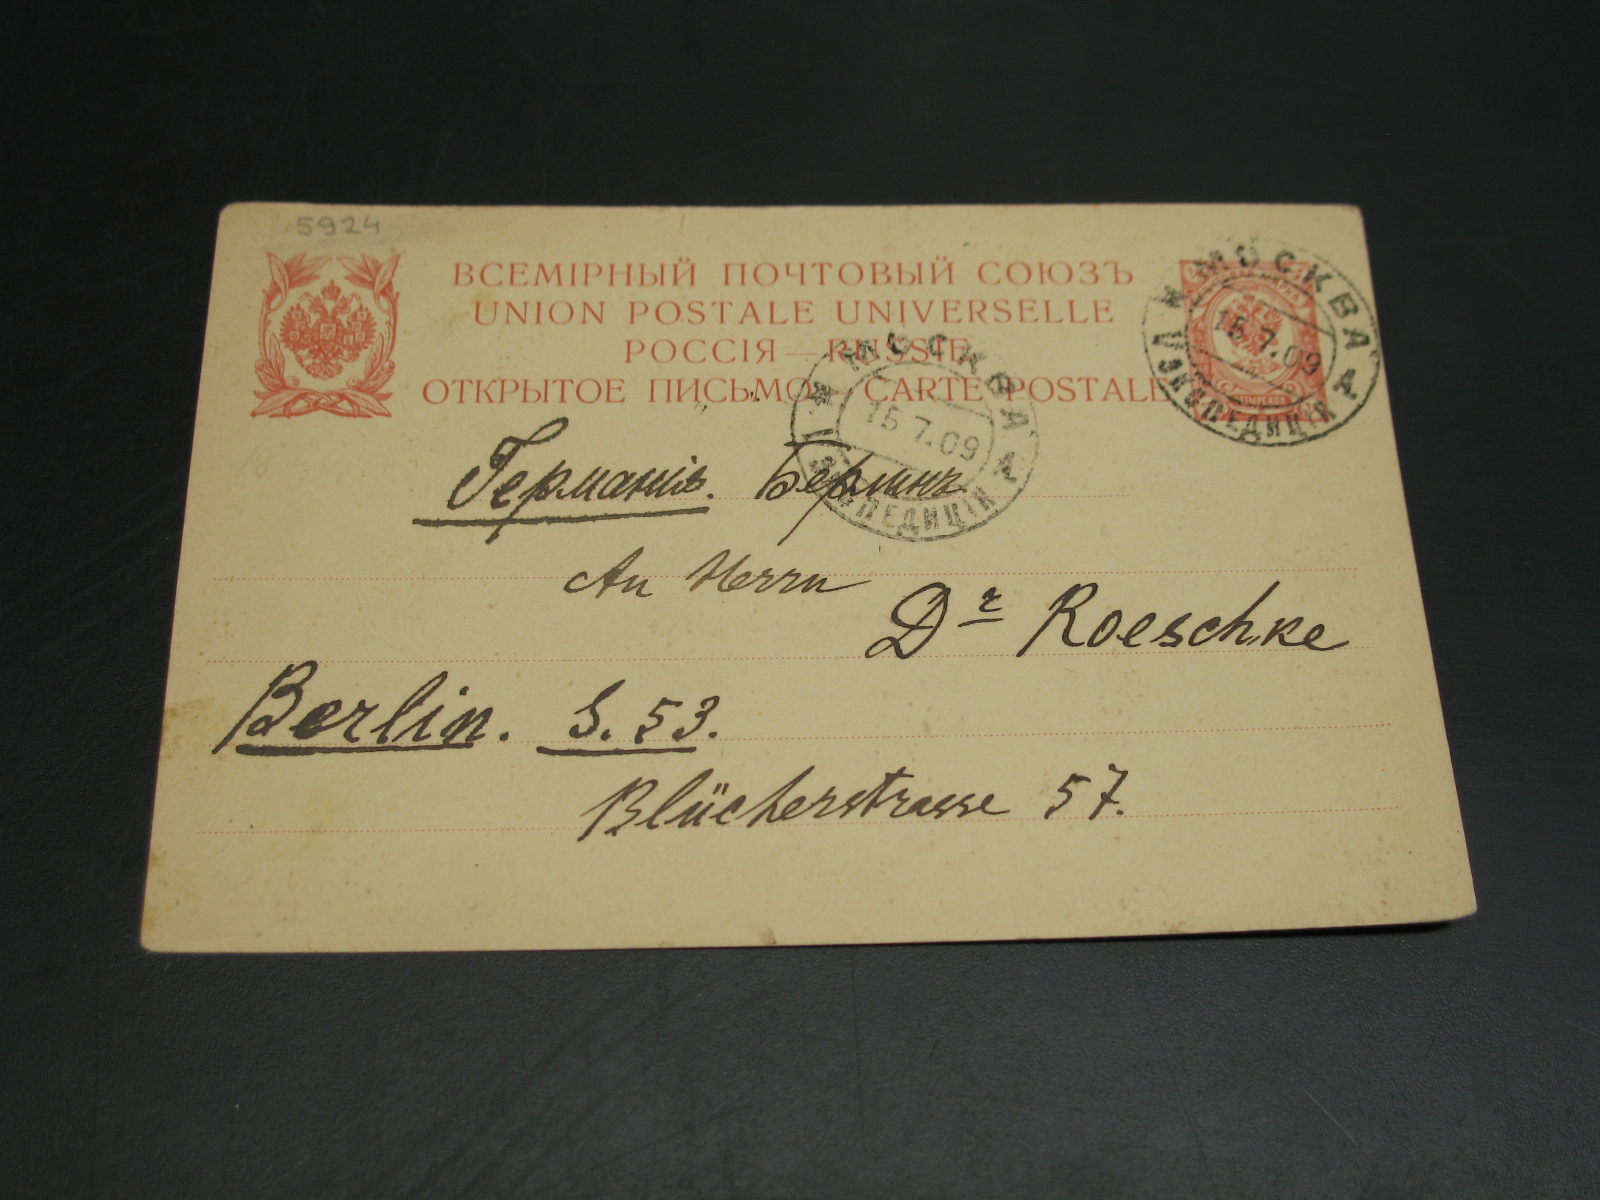 5924
ВСЕМІРНЫЙ ПОЧТОВЫЙ СОЮЗЪ
UNION POSTALE UNIVERSELLE
РОССІЯ — RUSSIE
ОТКРЫТОЕ ПИСЬМО — CARTE POSTALE
МОСКВА
15.7.09
ЭКСПЕДИЦІЯ
МОСКВА
15.7.09
ЭКСПЕДИЦІЯ
Германія. Берлинъ
An Herrn
Dr Roeschke
Berlin. S. 53.
Blücherstrasse 57.